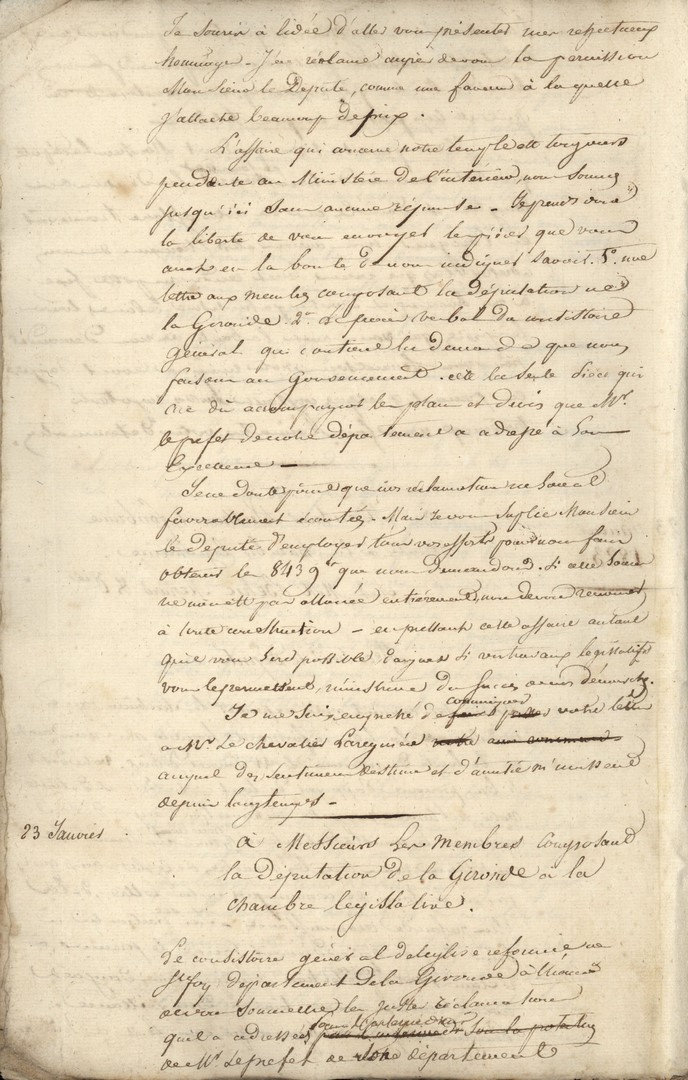 Je souris à lidée d'aller vous présenter mes respectueux
hommages. J'en réclame auprès de vous la permission
Monsieur le Député, comme une faveur à la quelle
j'attache beaucoup de prix.
L'affaire qui concerne notre temple est toujours
pendente au Ministère de l'intérieur, nous sommes
jusqu'ici sans aucune réponse. Je prends donc
la liberté de vous envoyer les pièces que vous
avez eu la bonté de nous indiquer savoir. 1º. une
lettre aux membres composant la députation de
la Gironde 2º. Le procès verbal du consistoire
général qui contient la demande que nous
faisons au Gouvernement. cette la seule pièce qui
ait dû accompagner le plan et devis que Mr.
le prefet de notre département a adressé à Son
Excellence —
Je ne doute point que nos réclamations ne soient
favorablement écoutées. Mais je vous suplie Monsieur
le député d'employer tous vos efforts pour nous faire
obtenir les 8439 fr que nous demandons. Si cette somme
ne nous est pas allouée entièrement, nous devons renoncer
à toute construction — en pressant cette affaire autant
qu'il vous sera possible
vous le permettent, du succès de nos démarches.
Je me suis empressé de communiquer votre lettre
à Mr. Le chevalier
auquel des sentimens d'estime et d'amitié m'unissent
depuis longtemps —
23 Janvier
à Messieurs Les membres composant
la députation de la Gironde à la
chambre législative.
Le consistoire général de l'église reformée de
Ste foy département de la Gironde à l'honneur
de vous soumettre les justes réclamations
qu'il a adressées
de Mr. Le prefet de votre département